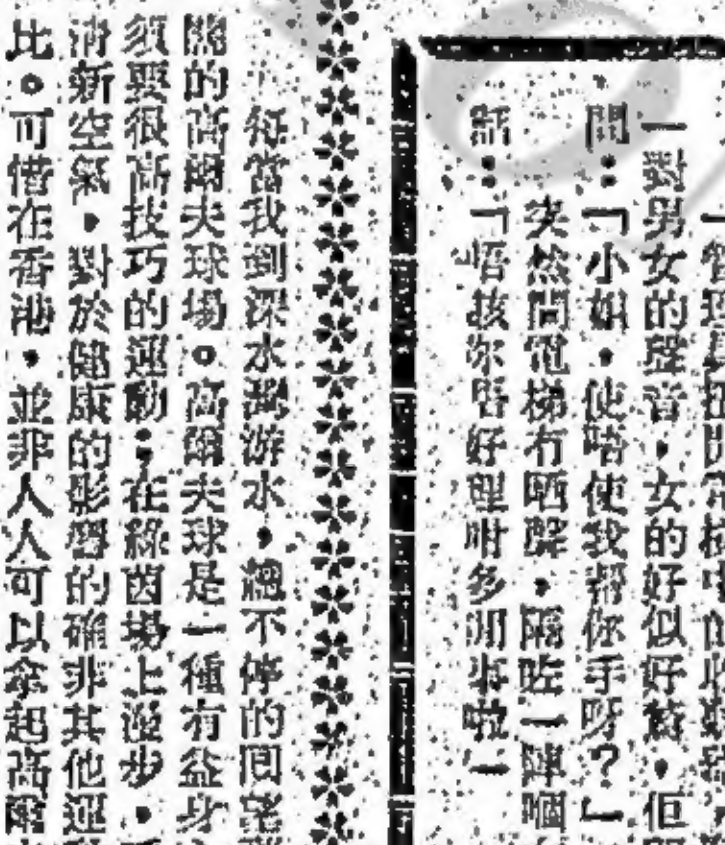 管理員
一對男女的聲音，女的好似好
問：「小姐，使唔使我幫你手呀？」
突然間電梯冇晒聲，隔咗一陣嗰
話：「唔該你唔好理咁多閒事啦
每當我到深水灣游水，總不停的
的高爾夫球場。高爾夫球是一種有益身
須要很高技巧的運動；在綠茵場上漫步，
清新空氣，對於健康的影響的確非其他運
比。可惜在香港，並非人人可以拿起高爾